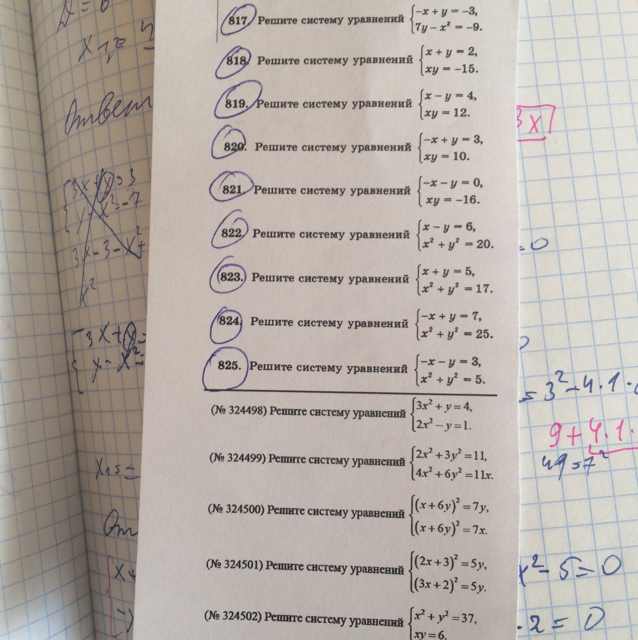 817. Решите систему уравнений {-x + y = -3,
7y - x² = -9.
818. Решите систему уравнений {x + y = 2,
xy = -15.
819. Решите систему уравнений {x - y = 4,
xy = 12.
820. Решите систему уравнений {-x + y = 3,
xy = 10.
821. Решите систему уравнений {-x - y = 0,
xy = -16.
822. Решите систему уравнений {x - y = 6,
x² + y² = 20.
823. Решите систему уравнений {x + y = 5,
x² + y² = 17.
824. Решите систему уравнений {-x + y = 7,
x² + y² = 25.
825. Решите систему уравнений {-x - y = 3,
x² + y² = 5.
(№ 324498) Решите систему уравнений {3x² + y = 4,
2x² - y = 1.
(№ 324499) Решите систему уравнений {2x² + 3y² = 11,
4x² + 6y² = 11x.
(№ 324500) Решите систему уравнений {(x + 6y)² = 7y,
(x + 6y)² = 7x.
(№ 324501) Решите систему уравнений {(2x + 3)² = 5y,
(3x + 2)² = 5y.
(№ 324502) Решите систему уравнений {x² + y² = 37,
xy = 6.
Ответ
3x
= 0
= 3² - 4·1·
9 + 4·1·
49 = 7²
x² - 5 = 0
2 = 0